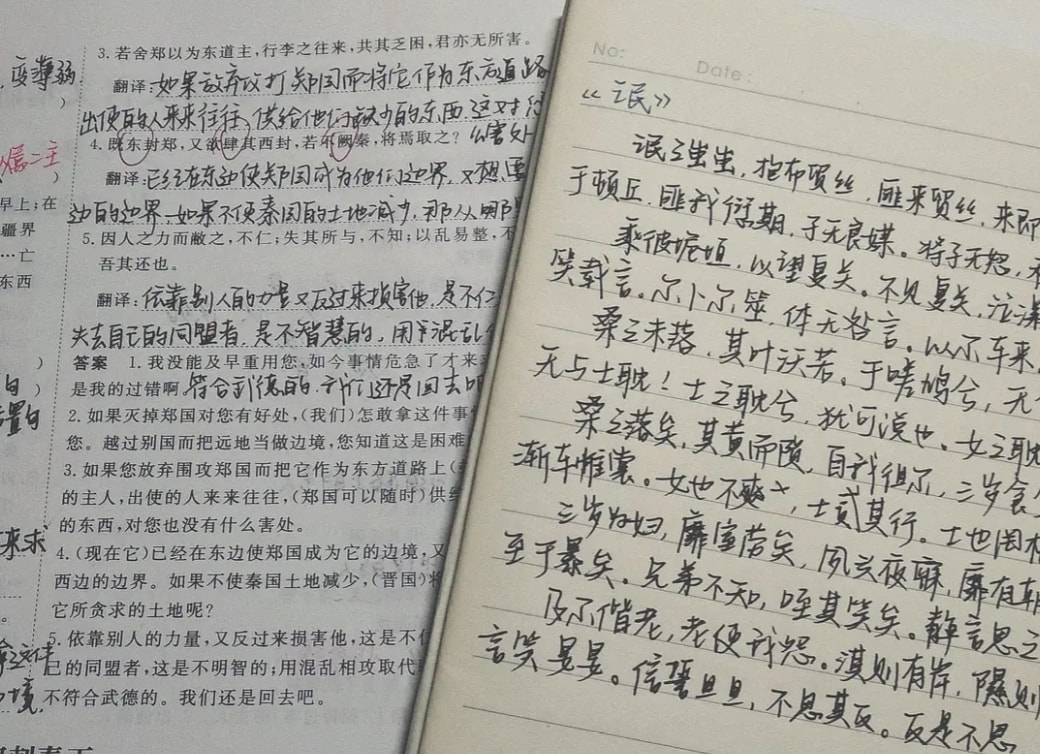 3. 若舍郑以为东道主，行李之往来，共其乏困，君亦无所害。
翻译：如果放弃攻打郑国而将它作为东方道路
出使的人来来往往，供给他们缺少的东西，这又对
4. 既东封郑，又欲肆其西封，若不阙秦，将焉取之？么害处
翻译：已经在东边使郑国成为他们边界，又想要
边的边界，如果不使秦国的土地减少，那从哪
5. 因人之力而敝之，不仁；失其所与，不知；以乱易整，不
吾其还也。
翻译：依靠别人的力量又反过来损害他，是不仁
失去自己的同盟者，是不智慧的，用乎混乱
答案 1. 我没能及早重用您，如今事情危急了才来
是我的过错啊。符合武德的，我们还是回去吧
2. 如果灭掉郑国对您有好处，（我们）怎敢拿这件事
您。越过别国而把远地当做边境，您知道这是困难
3. 如果您放弃围攻郑国而把它作为东方道路上（
的主人，出使的人来来往往，（郑国可以随时）供
的东西，对您也没有什么害处。
4.（现在它）已经在东边使郑国成为它的边境，又
西边的边界。如果不使秦国土地减少，（晋国）将
它所贪求的土地呢？
5. 依靠别人的力量，又反过来损害他，这是不仁
己的同盟者，这是不明智的；用混乱相攻取代
不符合武德的。我们还是回去吧。
早上；在
疆界
…亡
东西
来求
境
No:
Date:
《氓》
氓之蚩蚩，抱布贸丝，匪来贸丝，来即
于顿丘。匪我愆期，子无良媒。将子无怒，
乘彼垝垣，以望复关。不见复关，泣涕
笑载言。尔卜尔筮，体无咎言。以尔车来，
桑之未落，其叶沃若。于嗟鸠兮，无
无与士耽！士之耽兮，犹可说也。女之耽
桑之落矣，其黄而陨，自我徂尔，三岁食
渐车帷裳。女也不爽，士贰其行。士也罔极
三岁为妇，靡室劳矣，夙兴夜寐，靡有朝
至于暴矣。兄弟不知，咥其笑矣。静言思之
及尔偕老，老使我怨。淇则有岸，隰则
言笑晏晏。信誓旦旦，不思其反。反是不思